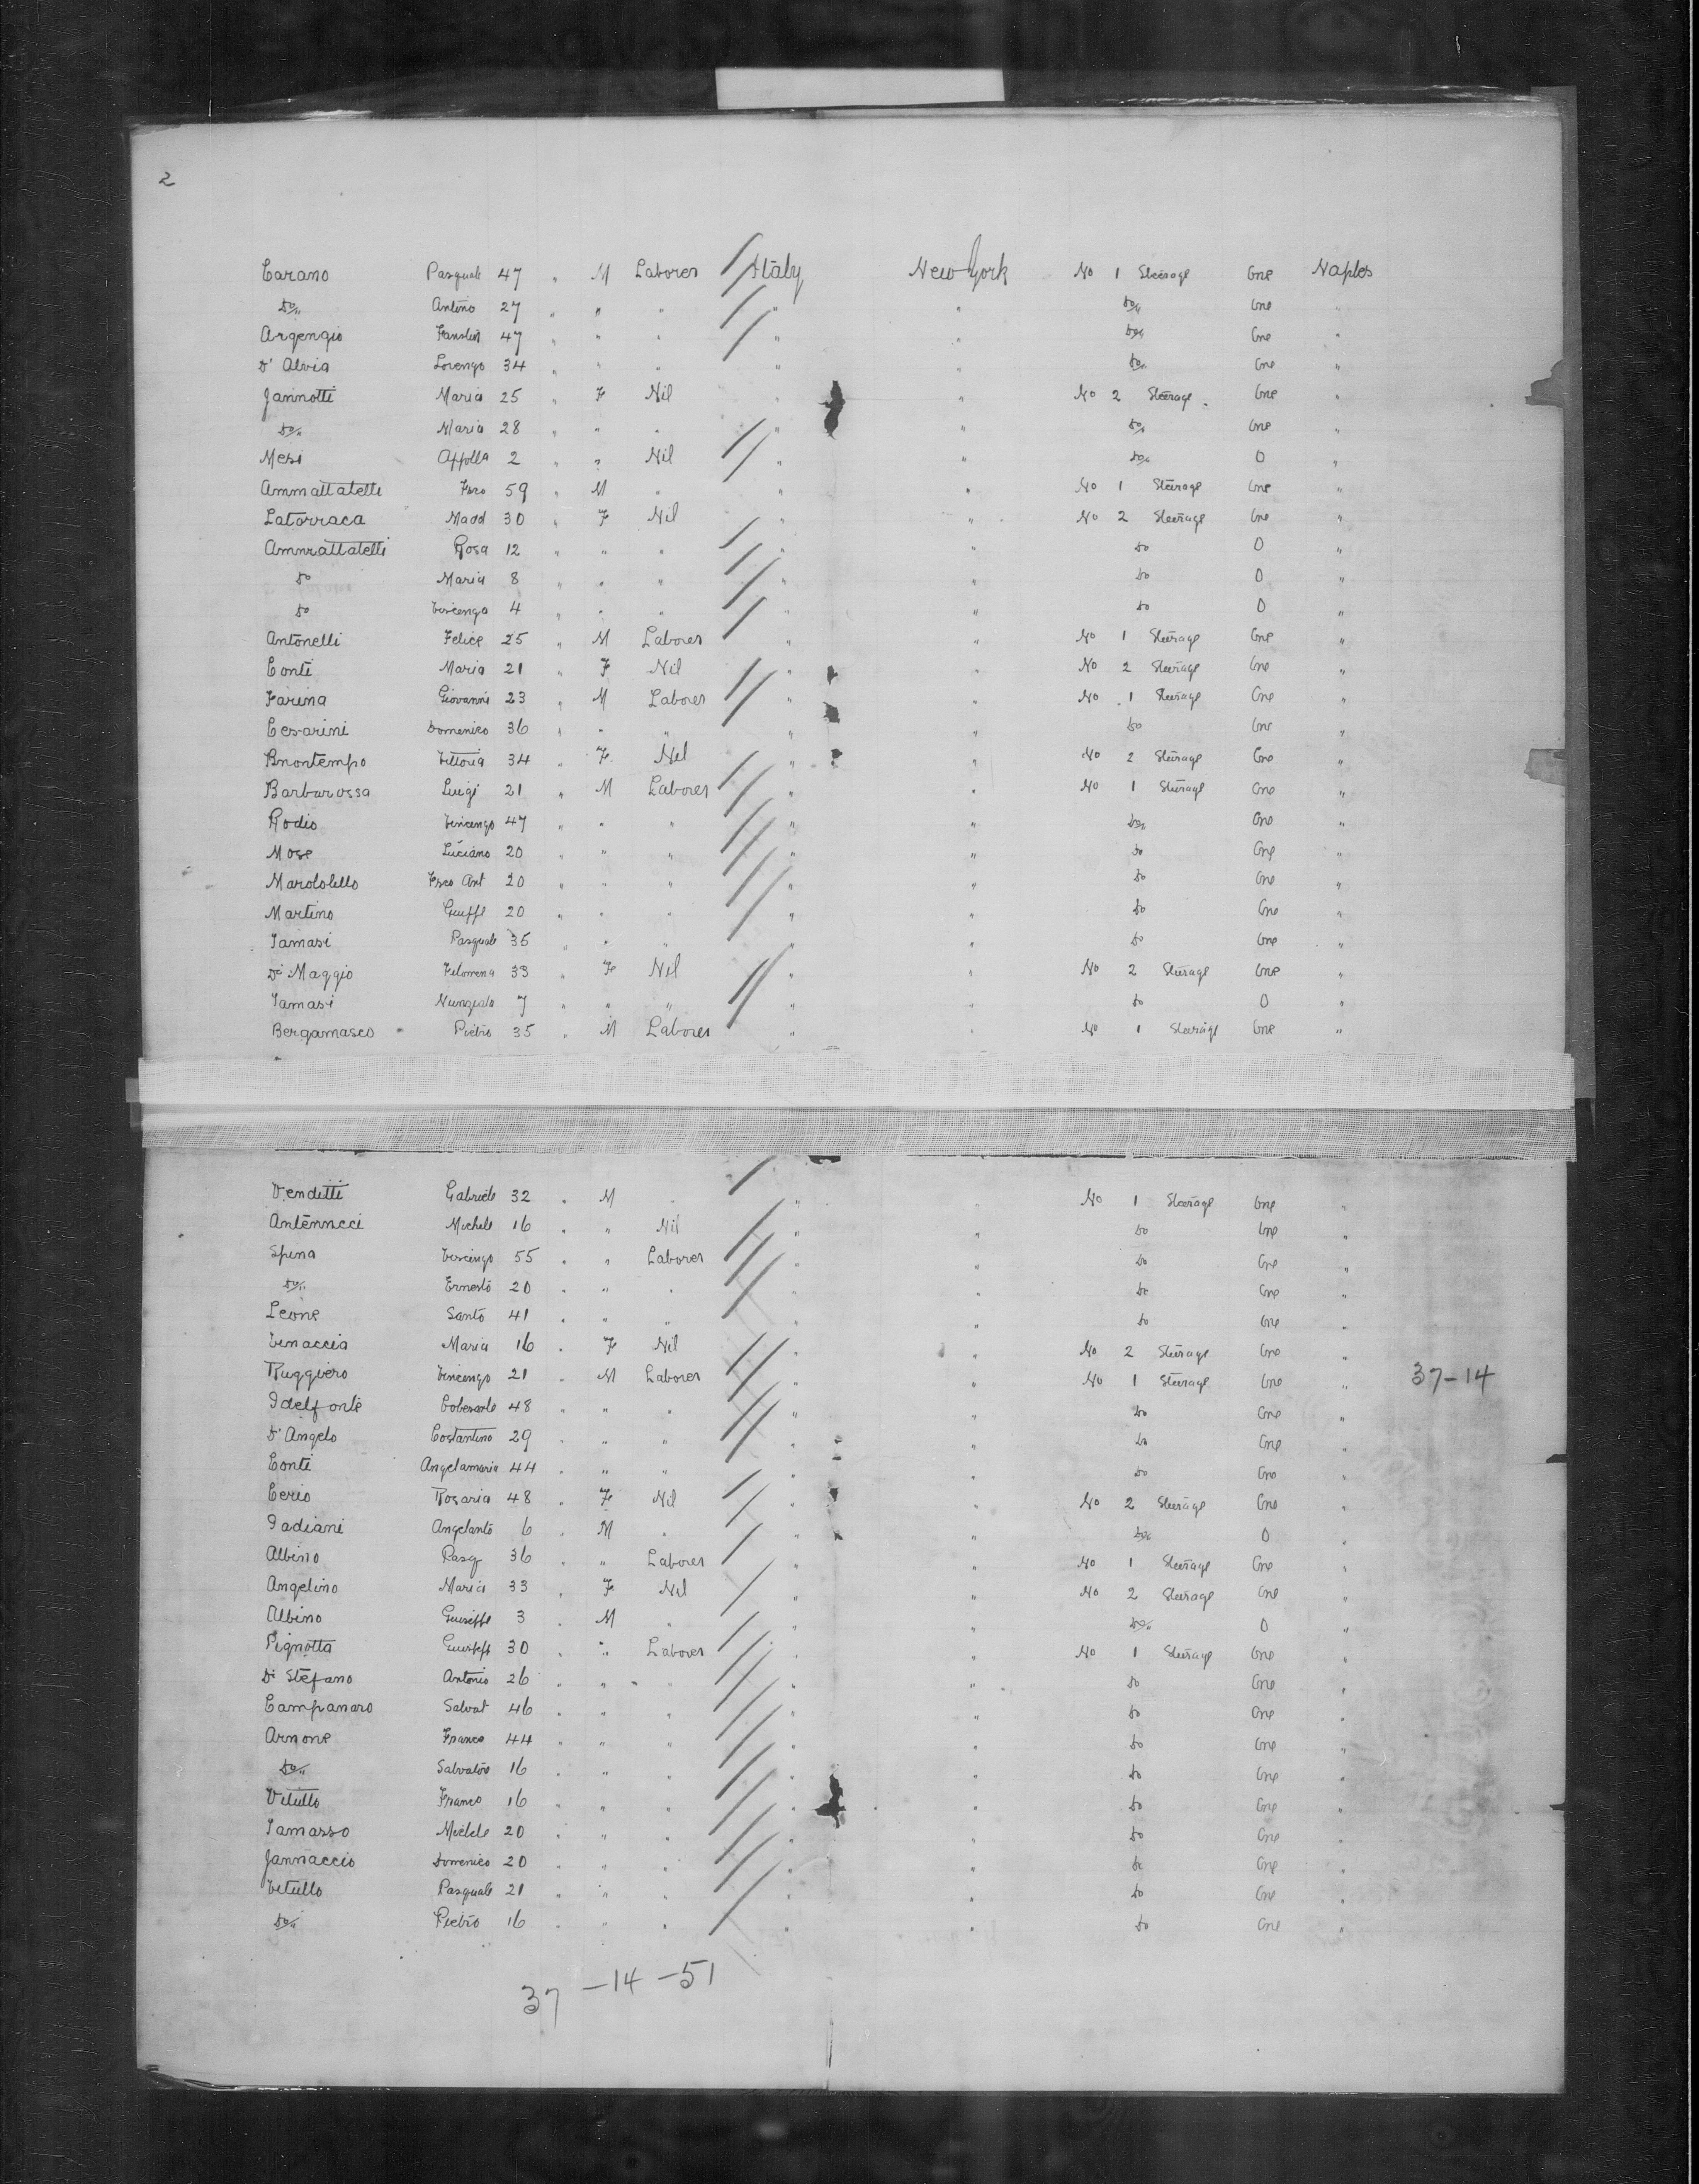 2
Carano Pasquale 47 " M Laborer Italy New York No 1 Steerage One Naples
Do/" Antino 27 " " " " " Do/" One "
Argengio 47 " " " " " Do/" One "
D' Alvia Lorenzo 34 " " " " " Do/" One "
Jannotti Maria 25 " F Nil " " No 2 Steerage One "
Do/" Maria 28 " " " " " Do/" One "
Mesi Appolla 2 " " Nil " " Do/" 0 "
Ammattatelli Fsco 59 " M " " " No 1 Steerage One "
Latorraca Madd 30 " F Nil " " No 2 Steerage One "
Ammattatelli Rosa 12 " " " " " Do 0 "
Do Maria 8 " " " " " Do 0 "
Do Vincenza 4 " " " " " Do 0 "
Antonelli Felice 25 " M Laborer " " No 1 Steerage One "
Conti Maria 21 " F Nil " " No 2 Steerage One "
Farina Giovanni 23 " M Laborer " " No 1 Steerage One "
Cesarini Domenico 36 " " " " " Do One "
Bnontempo Vittoria 34 " F Nil " " No 2 Steerage One "
Barbarossa Luigi 21 " M Laborer " " No 1 Steerage One "
Rodio Vincenzo 47 " " " " " Do/" One "
Mose Luciano 20 " " " " " Do One "
Marcolello Fsco Ant 20 " " " " " Do One "
Martino Giuspe 20 " " " " " Do One "
Tamasi Pasquale 35 " " " " " Do One "
Di Maggio Filomena 33 " F Nil " " No 2 Steerage One "
Tamasi Nunziato 7 " " " " " Do 0 "
Bergamasco Pietro 35 " M Laborer " " No 1 Steerage One "
Venditti Gabriele 32 " M " " " No 1 Steerage One "
Antenucci Michele 16 " " Nil " " Do One "
Spina Vincenzo 55 " " Laborer " " Do One "
Do/" Ernesto 20 " " " " " Do One "
Leone Santo 41 " " " " " Do One "
Venaccia Maria 16 " F Nil " " No 2 Steerage One "
Ruggiero Vincenzo 21 " M Laborer " " No 1 Steerage One " 37-14
Idelfonte 48 " " " " " Do One "
D' Angelo Costantino 29 " " " " " Do One "
Conti Angelamaria 44 " " " " " Do One "
Cerio Rosaria 48 " F Nil " " No 2 Steerage One "
Angelanto 6 " M " " " Do/" 0 "
Albino Pasq 36 " " Laborer " " No 1 Steerage One "
Angelino Maria 33 " F Nil " " No 2 Steerage One "
Albino Giuseppe 3 " M " " " Do/" 0 "
Pignotta Giuseppe 30 " " Laborer " " No 1 Steerage One "
Di Stefano Antonio 26 " " " " " Do One "
Campanaro Salvat 46 " " " " " Do One "
Arnone Franco 44 " " " " " Do One "
Do/" Salvatore 16 " " " " " Do One "
Vitullo Franco 16 " " " " " Do One "
Tamasso Michele 20 " " " " " Do One "
Jannaccio Domenico 20 " " " " " Do One "
Vitullo Pasquale 21 " " " " " Do One "
Do/" Pietro 16 " " " " " Do One "
37 -14 -51